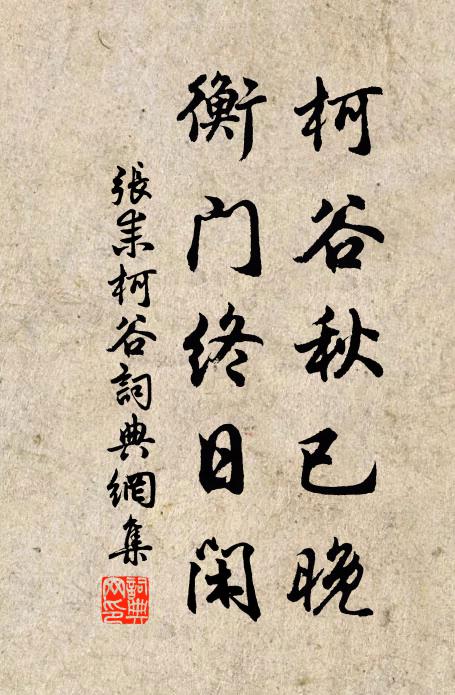 柯谷秋已晚
衡门终日闲
張耒柯谷詞典網集
詞典网印